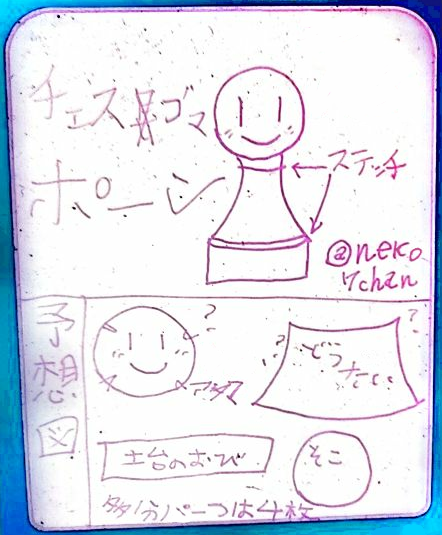 チェスゴマ
ポーン
ステッチ
@neko
7chan
予想図
?
アタマ
?
?
どうたい
土台のおび
そこ
多分パーツは4枚